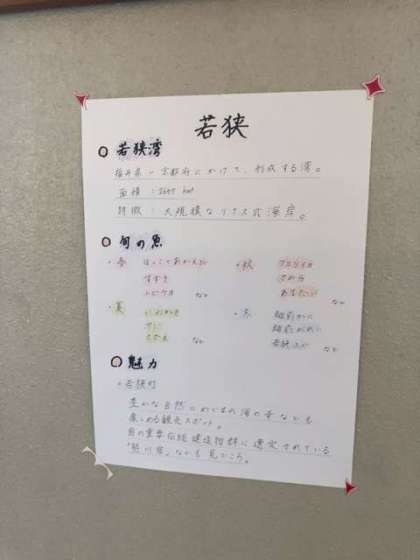 若狭
○ 若狭湾
福井県〜京都府にかけて、形成する湾。
面積：2657 km²
特徴：大規模なリアス式海岸。
○ 旬の魚
・春
・秋
すずき
トビウオ など
など
・夏
・冬
越前がに
越前がれい
若狭ふぐ
など
など
○ 魅力
○若狭町
豊かな自然にめぐまれ海の幸なども
楽しめる観光スポット。
国の重要伝統建造物群に選定されている
「熊川宿」なども見どころ。